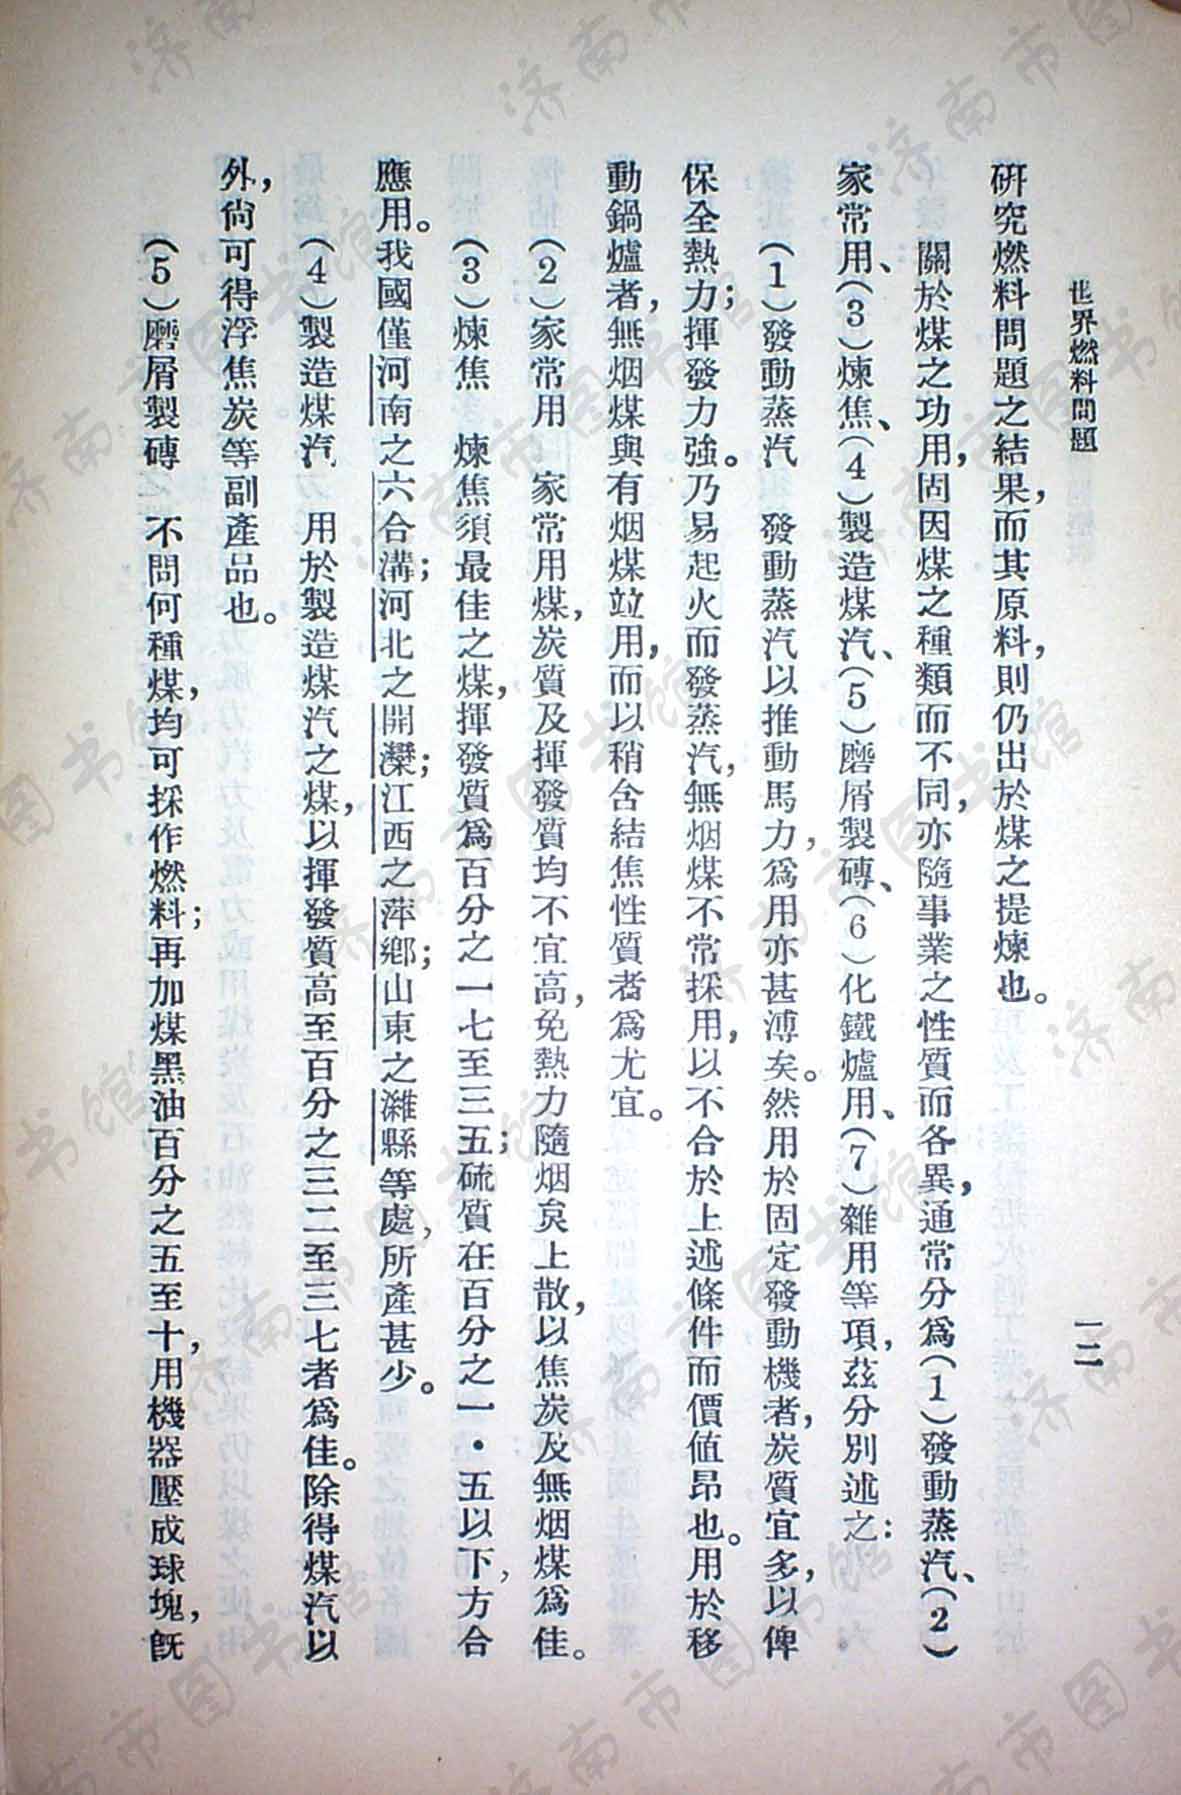 世界燃料問題
一二
研究燃料問題之結果，而其原料，則仍出於煤之提煉也。
關於煤之功用，固因煤之種類而不同，亦隨事業之性質而各異，通常分爲（1）發動蒸汽、（2）
家常用、（3）煉焦、（4）製造煤汽、（5）磨屑製磚、（6）化鐵爐用、（7）雜用等項，茲分別述之：
（1）發動蒸汽　發動蒸汽以推動馬力，爲用亦甚溥矣。然用於固定發動機者，炭質宜多，以俾
保全熱力；揮發力強。乃易起火而發蒸汽，無烟煤不常採用，以不合於上述條件而價值昂也。用於移
動鍋爐者，無烟煤與有烟煤竝用，而以稍含結焦性質者爲尤宜。
（2）家常用　家常用煤，炭質及揮發質均不宜高，免熱力隨烟炱上散，以焦炭及無烟煤爲佳。
（3）煉焦　煉焦須最佳之煤，揮發質爲百分之一七至三五；硫質在百分之一・五以下，方合
應用。我國僅河南之六合溝；河北之開灤；江西之萍鄉；山東之濰縣等處，所產甚少。
（4）製造煤汽　用於製造煤汽之煤，以揮發質高至百分之三二至三七者爲佳。除得煤汽以
外，尙可得浮焦炭等副產品也。
（5）磨屑製磚　不問何種煤，均可採作燃料；再加煤黑油百分之五至十，用機器壓成球塊，既
济南市图书馆